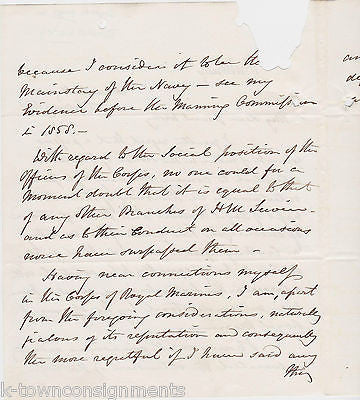 because I consider it to be the
Mainstay of the Navy – see my
Evidence before the Manning Commission
in 1858. –
With regard to the Social position of the
Officers of the Corps, no one could for a
Moment doubt that it is equal to that
of any other Branches of H M Service
and as to their Conduct on all occasions
none have surpassed them –
Having near connections myself
in the Corps of Royal Marines, I am, apart
from the foregoing considerations, naturally
jealous of its reputation and consequently
the more regretful if I have said any
thing
an
de
k-townconsignments